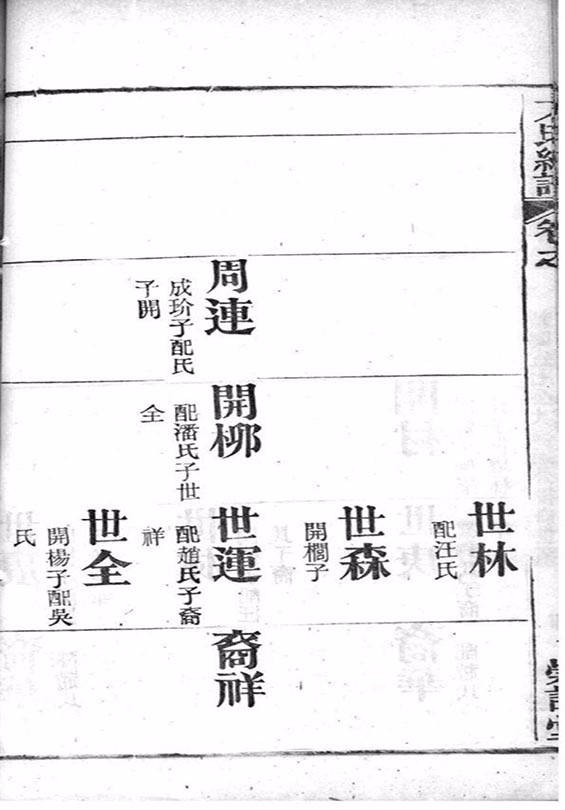 卷之
周連
成玠子配氏
子開
開柳
配潘氏子世
全
世林
配汪氏
世森
開櫚子
世運
配趙氏子裔
祥
世全
開楊子配吳
氏
裔祥